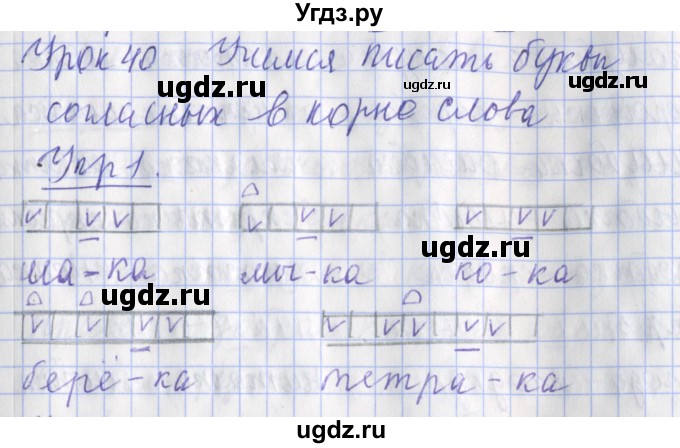 Угдз.ру
Урок 40 Учимся писать буквы
ugdz.ru ugdz.ru
согласных в корне слова
ugdz.ru
Упр 1.
ugdz.ru
ша-ка мы-ка ко-ка
ugdz.ru
берё-ка петра-ка
ugdz.ru